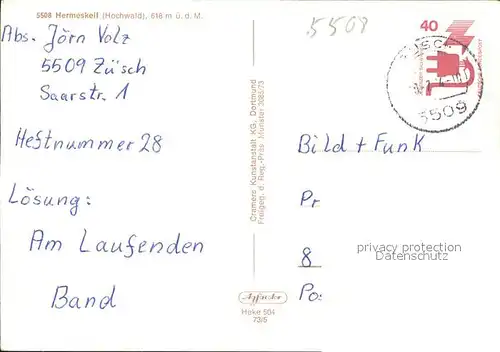 5508 Hermeskeil (Hochwald), 618 m ü. d. M.
Abs. Jörn Volz
5509 Züsch
Saarstr. 1
Heftnummer 28
Lösung:
Am Laufenden
Band
Cramers Kunstanstalt KG, Dortmund
Freigeg. d. Reg.-Präs. Münster
Heke 504
73/5
5509
40
5509
Bild + Funk
Pr
8
Po
privacy protection
Datenschutz